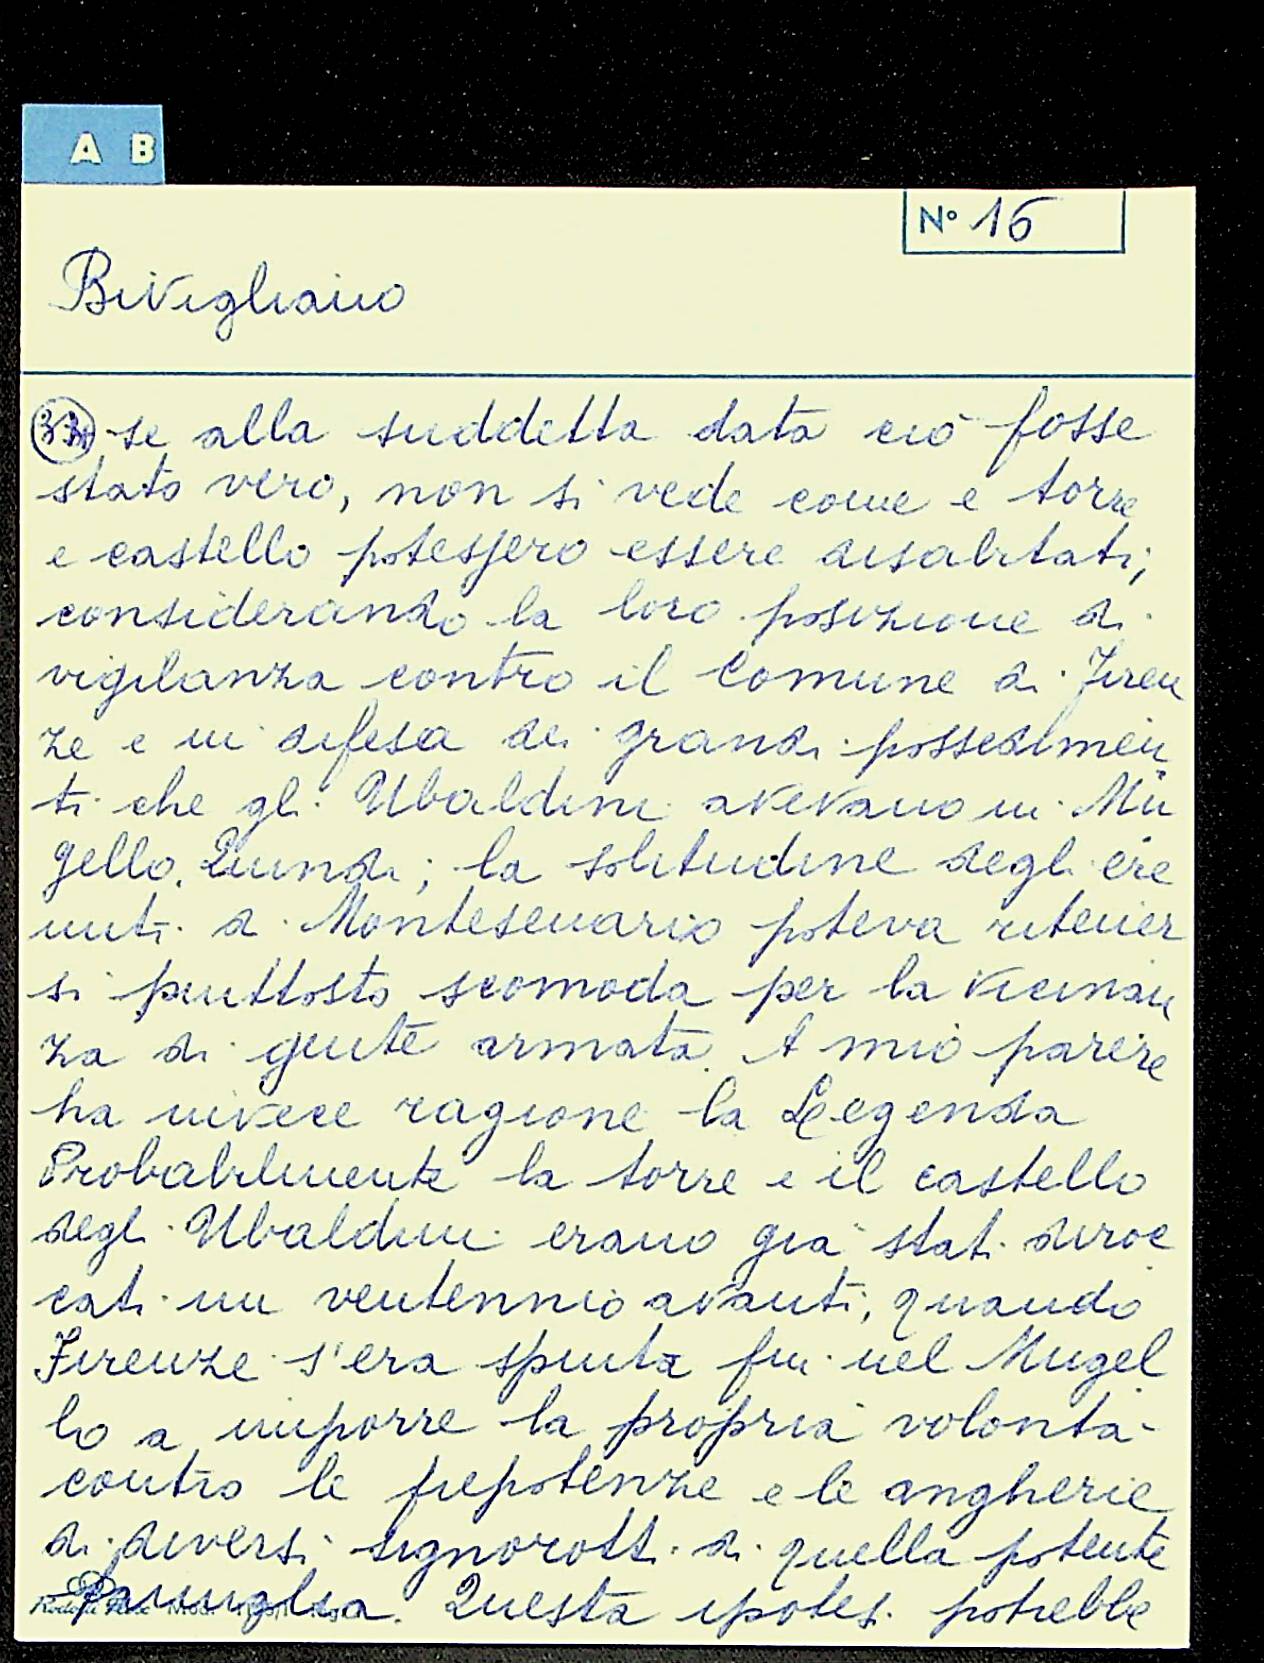 A B
N° 16
Bivigliano
se alla suddetta data ciò fosse
stato vero, non si vede come e torre
e castello potessero essere disabitati;
considerando la loro posizione di
vigilanza contro il Comune di Firen
ze e in difesa dei grandi possedimen
ti che gli Ubaldini avevano in Mu
gello. Quindi; la solitudine degli ere
miti di Montesenario poteva ritener
si piuttosto scomoda per la vicinan
za di gente armata. A mio parere
ha invece ragione la Legenda
Probabilmente la torre e il castello
degli Ubaldini erano già stati diroc
cati un ventennio avanti, quando
Firenze s'era spinta fin nel Mugel
lo a imporre la propria volontà
contro le prepotenze e le angherie
di diversi signorotti di quella potente
famiglia. Questa ipotesi potrebbe